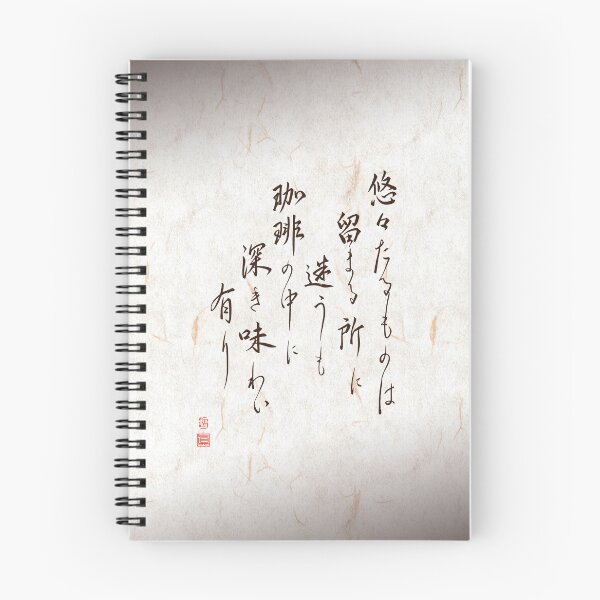 悠々たるものは
留まる所に
迷うも
珈琲の中に
深き味わい
有り